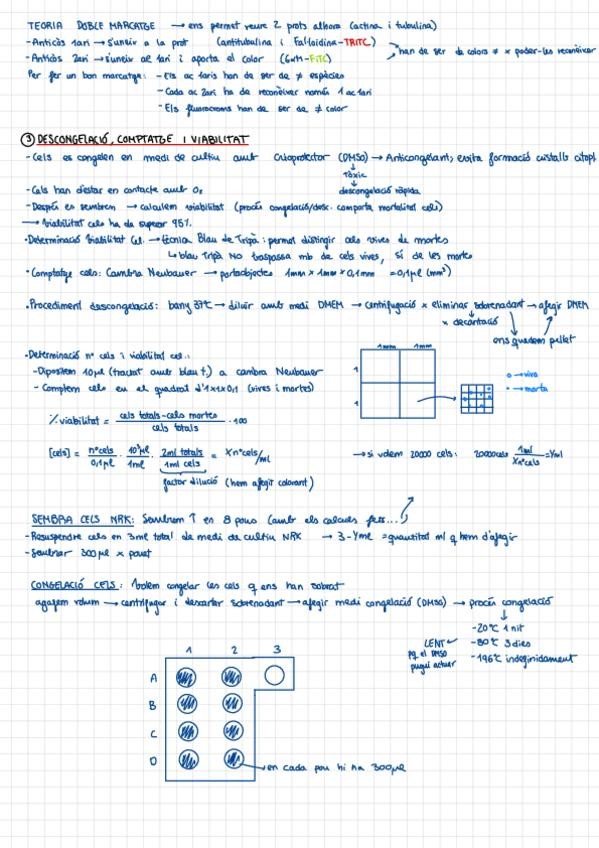 TEORIA DOBLE MARCATGE → ens permet veure 2 prots alhora (actina i tubulina)
-Anticòs 1ari → s'uneix a la prot (antitubulina i Fal·loidina-TRITC)
-Anticòs 2ari → s'uneix al 1ari i aporta el color (GαM-FITC)
han de ser de colors ≠ x poder-los reconèixer
Per fer un bon marcatge: - Els ac 1aris han de ser de ≠ espècies
- Cada ac 2ari ha de reconèixer només 1 ac 1ari
- Els fluorocroms han de ser de ≠ color
③ DESCONGELACIÓ, COMPTATGE I VIABILITAT
- Cèls es congelen en medi de cultiu amb crioprotector (DMSO) → Anticongelant; evita formació cristalls citopl
↓
tòxic
↓
- Cèls han d'estar en contacte amb O₂
descongelació ràpida
- Després es sembren → calculem viabilitat (procés congelació/desc. comporta mortalitat cels)
→ Viabilitat cels ha de superar 95%
·Determinació Viabilitat Cel. → tècnica Blau de Tripà: permet distingir cels vives de mortes
↳ blau Tripà NO traspassa mb de cels vives, sí de les mortes
·Comptatge cels: Cambra Neubauer → portaobjectes 1mm x 1mm x 0,1mm = 0,1μl (mm³)
·Procediment descongelació: bany 37ºC → diluir amb medi DMEM → centrifugació x eliminar sobrenadant → afegir DMEM
x decantació
ens quedem pellet
·Determinació nº cels i viabilitat cel.:
1mm 1mm
- Dipositem 10μl (tractat amb blau t.) a cambra Neubauer
1
o → viva
- Comptem cels en el quadrat d'1x1x0,1 (vives i mortes)
1
• → morta
% viabilitat = cels totals-cels mortes / cels totals · 100
[cels] = nºcels / 0,1μl · 10³μl / 1ml · 2ml totals / 1ml cels = X nºcels/ml → si volem 20000 cels: 20000cels 1ml / Xnºcels = Yml
factor dilució (hem afegir colorant)
SEMBRA CELS NRK: Sembrem 1 en 8 pous (amb els càlculs fets...)
- Resuspendre cels en 3ml total de medi de cultiu NRK → 3-Yml = quantitat ml q hem d'afegir
- Sembrar 300μl x pouet
CONGELACIÓ CELS: Volem congelar les cels q ens han sobrat
agafem volum → centrifugar i descartar sobrenadant → afegir medi congelació (DMSO) → procés congelació
↓
-20ºC 1 nit
LENT -80ºC 3 dies
pq el DMSO -196ºC indefinidament
pugui actuar
1 2 3
A
B
C
D
en cada pou hi ha 300μl